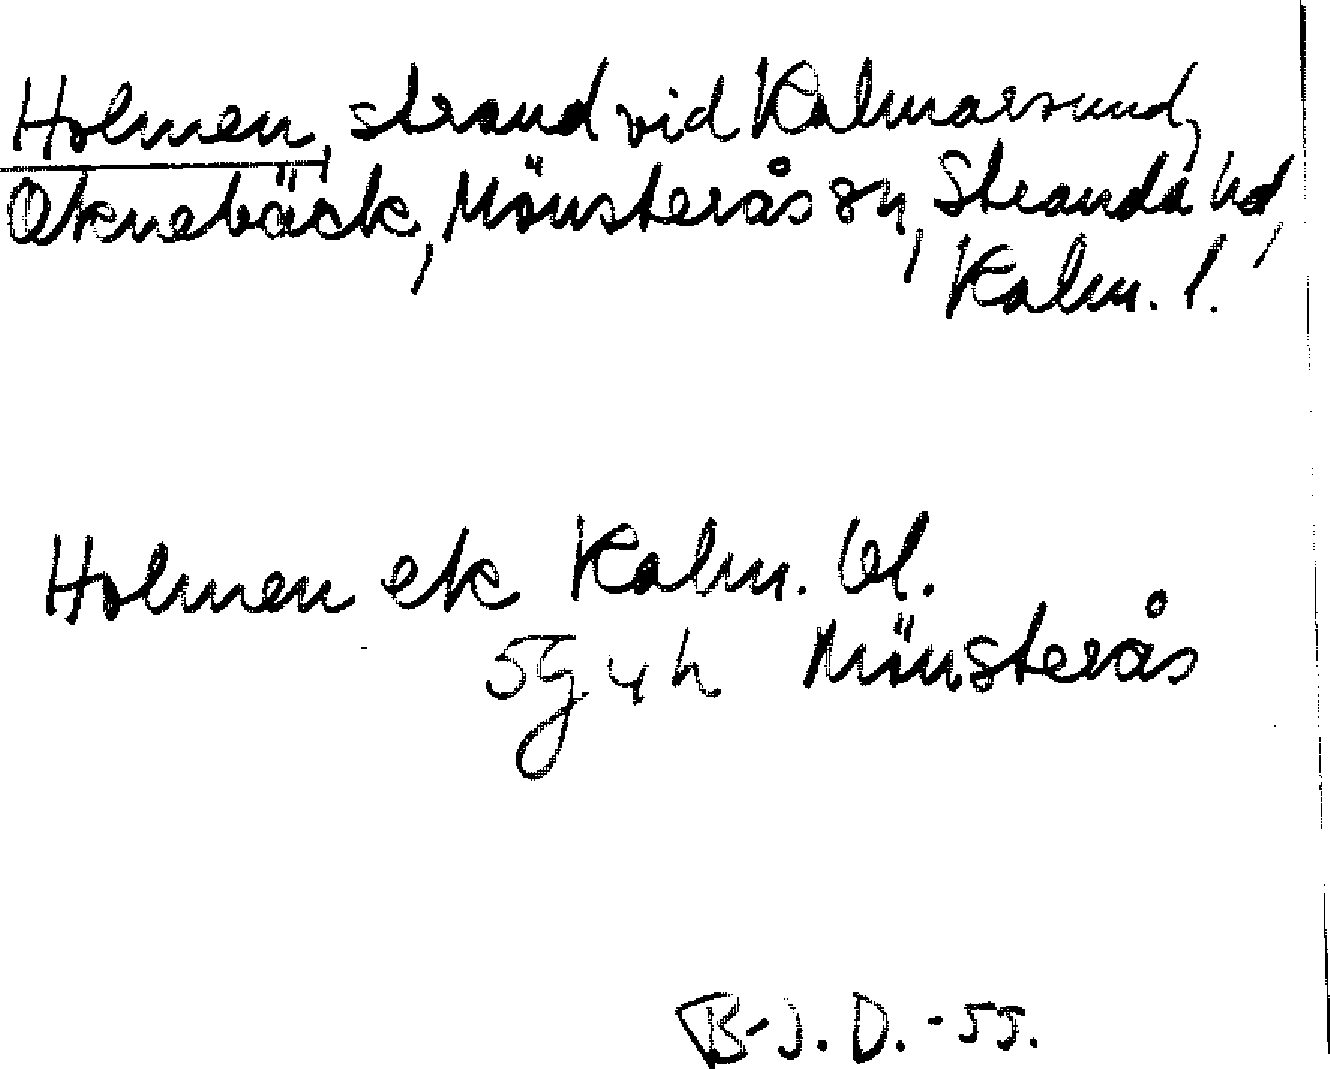 Holmen, strand vid Kalmarsund,
Oknebäck, Mönsterås sn, Stranda hd,
Kalm. l.
Holmen ek Kalm. bl.
5G 4h Mönsterås
B-J.D.-55.